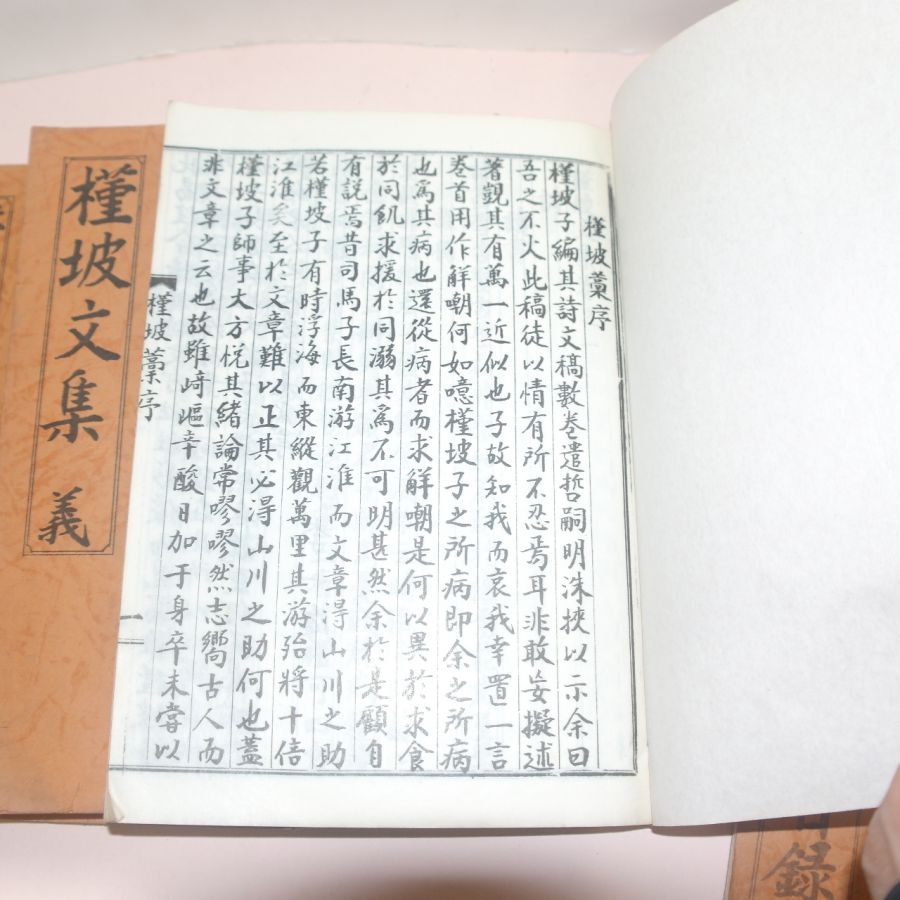 槿坡藁序
槿坡子編其詩文稿數卷遣哲嗣明洙挾以示余曰
吾之不火此稿徒以情有所不忍焉耳非敢妄擬述
著覬其有萬一近似也子故知我而哀我幸置一言
卷首用作解嘲何如噫槿坡子之所病即余之所病
也爲其病也還從病者而求解嘲是何以異於求食
於同飢求援於同溺其爲不可明甚然余於是顧自
有説焉昔司馬子長南游江淮而文章得山川之助
若槿坡子有時浮海而東縱觀萬里其游殆將十倍
江淮矣至於文章難以正其必得山川之助何也蓋
槿坡子師事大方悦其緒論常嘐嘐然志嚮古人而
非文章之云也故雖﨑嶇辛酸日加于身卒未嘗以
槿坡藁序
一
槿坡文集 義
目錄